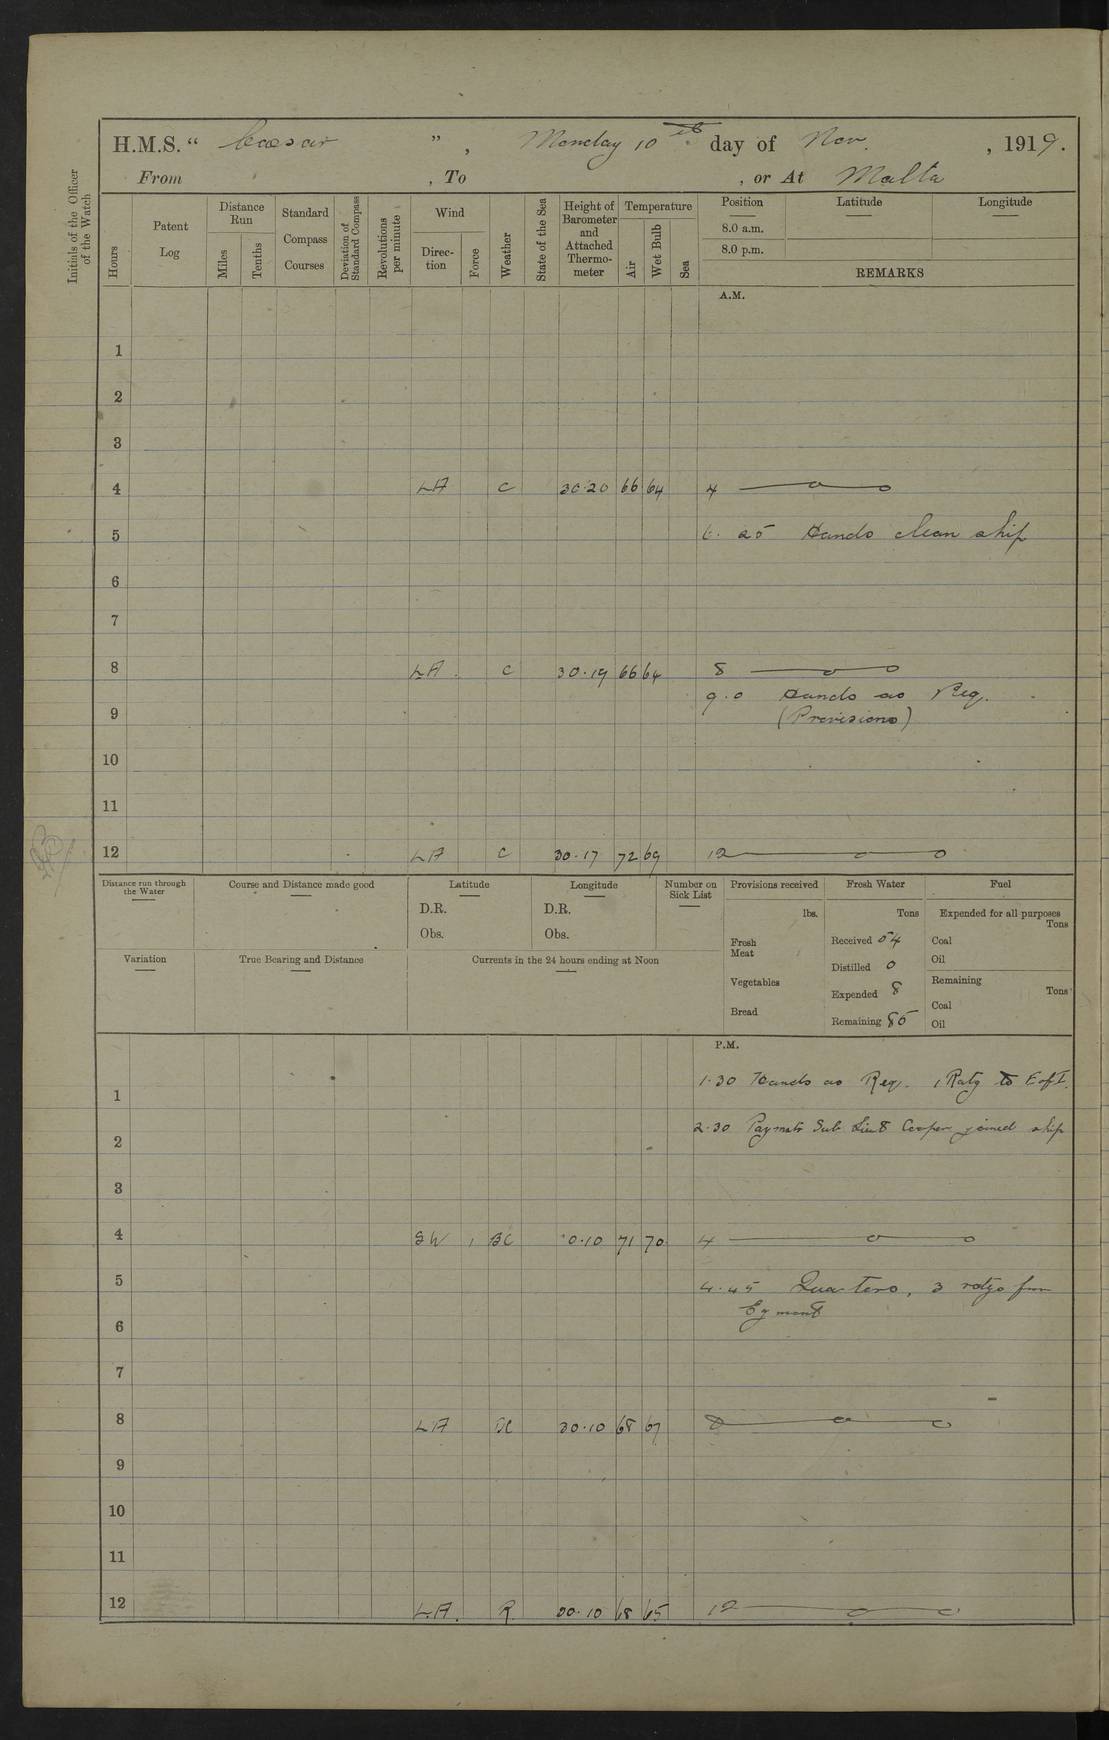 H.M.S. “ Caesar ” , Monday 10th day of Nov. , 1919.
From , To , or At Malta
Initials of the Officer of the Watch
Hours
Patent Log
Distance Run
Miles
Tenths
Standard Compass Courses
Deviation of Standard Compass
Revolutions per minute
Wind
Direc-tion
Force
Weather
State of the Sea
Height of Barometer and Attached Thermo-meter
Temperature
Air
Wet Bulb
Sea
Position Latitude Longitude
8.0 a.m.
8.0 p.m.
REMARKS
A.M.
1
2
3
4 LA C 30.20 66 64 4
5 6. 25 Hands clean ship
6
7
8 LA. C 30.19 66 64 8
9.0 Hands as Req.
9 (Provisions)
10
11
12 LA C 30.17 72 69 12
Distance run through the Water
Course and Distance made good
Latitude
D.R.
Obs.
Longitude
D.R.
Obs.
Number on Sick List
Provisions received
lbs.
Fresh Meat
Vegetables
Bread
Fresh Water
Tons
Received 54
Distilled 0
Expended 8
Remaining 85
Fuel
Expended for all purposes
Tons
Coal
Oil
Remaining
Tons
Coal
Oil
Variation
True Bearing and Distance
Currents in the 24 hours ending at Noon
P.M.
1.30 Hands as Req. 1 Ratg to E of I.
1
2.30 Paymstr Sub Lieut Cooper joined ship
2
3
4 SW 1 BC 0.10 71 70 4
5 4.45 Quarters, 3 ratgs from
Egmont
6
7
8 LA 30.10 68 67 8
9
10
11
12 L.A. R 30.10 68 65 12